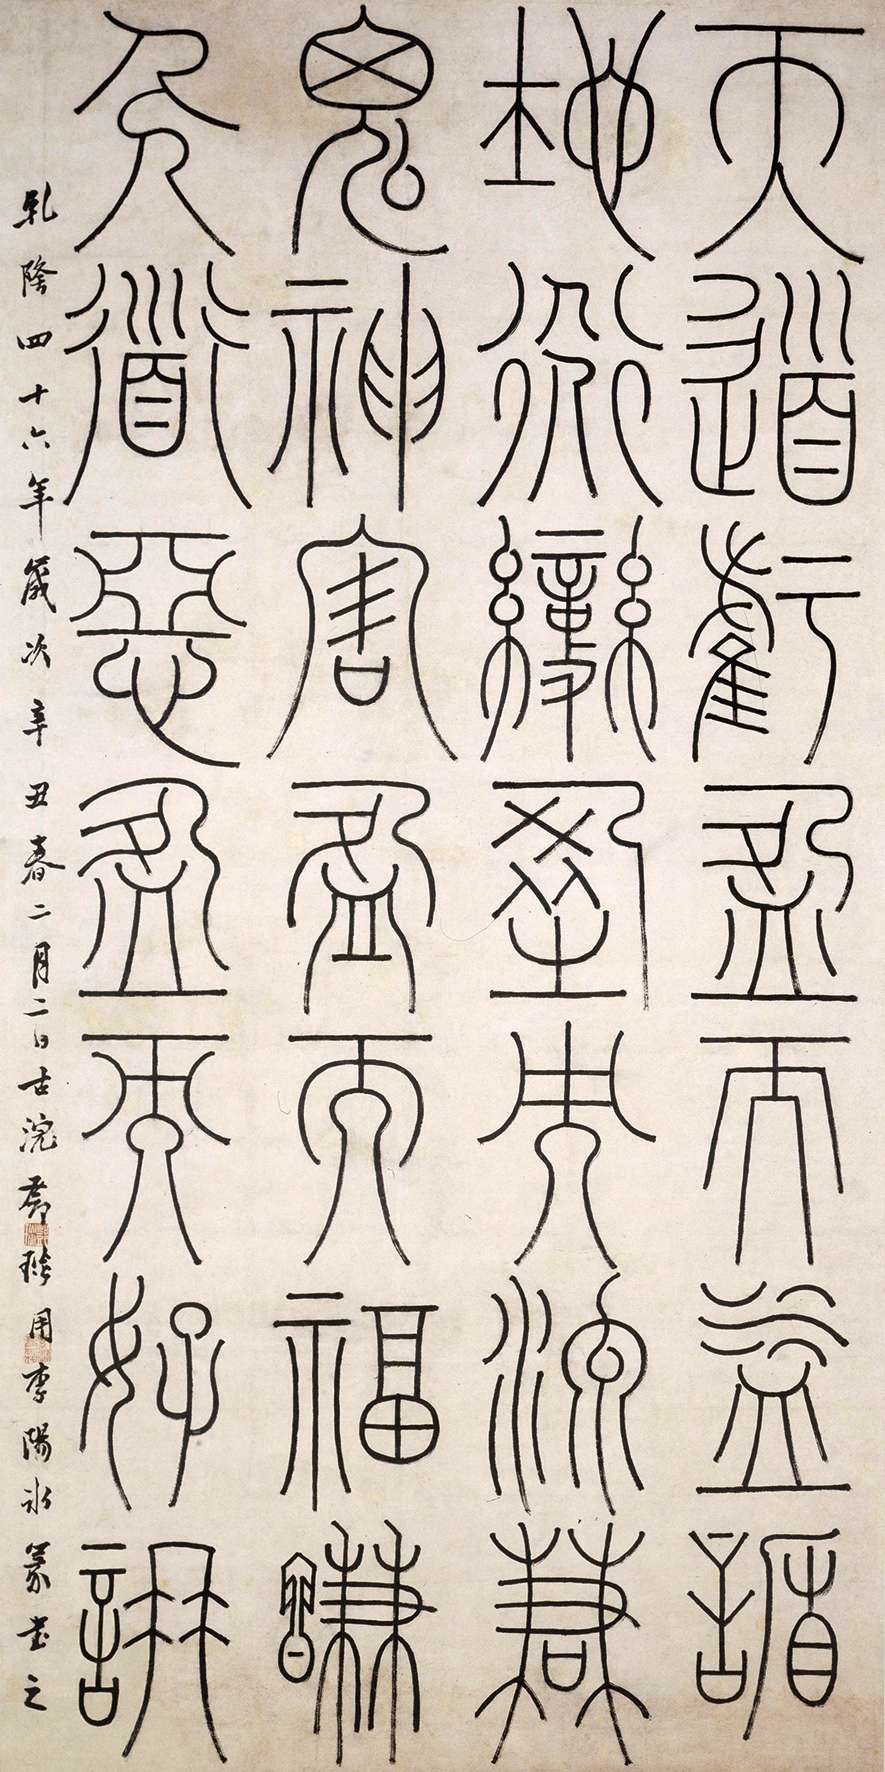 天道虧盈而益謙
地道變盈而流謙
鬼神害盈而福謙
人道惡盈而好謙
乹隆四十六年歲次辛丑春二月二日古浣鄧琰用李陽冰篆書之